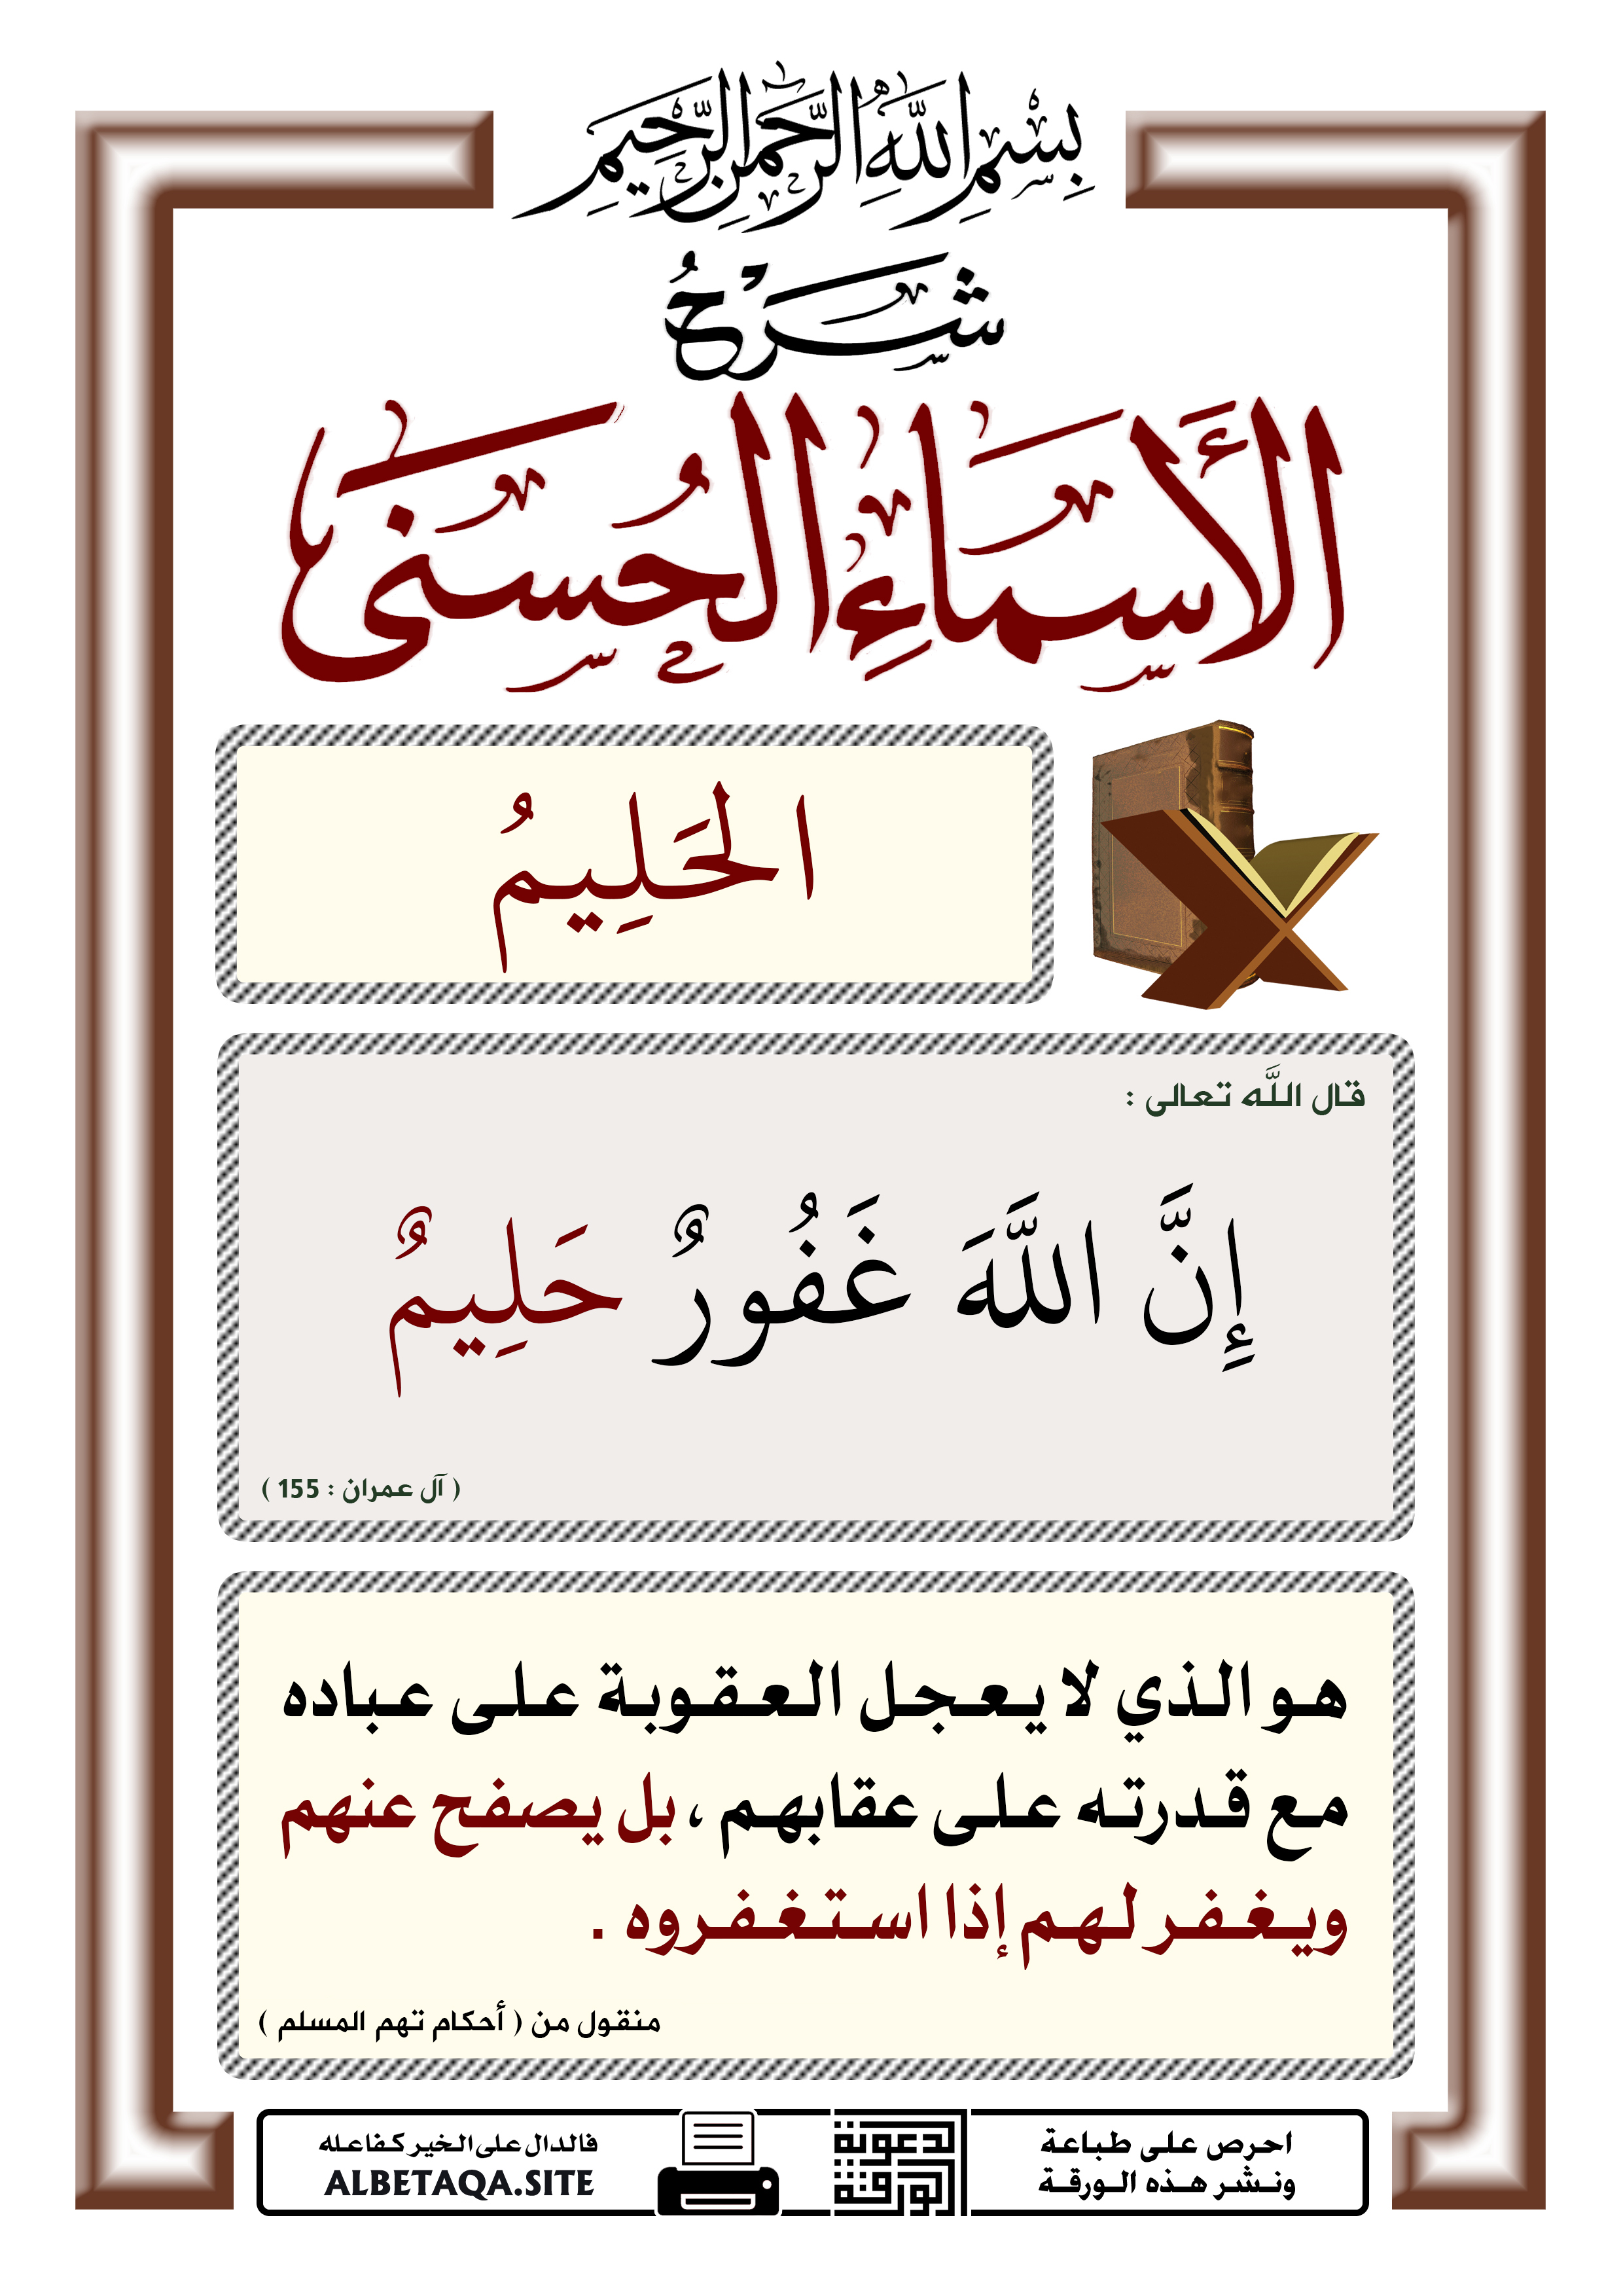 بِسْمِ اللَّهِ الرَّحْمَنِ الرَّحِيمِ
شَرْحُ
الأَسْمَاءِ الحُسْنَى
الحَلِيمُ
قال اللَّه تعالى :
إِنَّ اللَّهَ غَفُورٌ حَلِيمٌ
( آل عمران : 155 )
هو الذي لا يعجل العقوبة على عباده
مع قدرته على عقابهم ، بل يصفح عنهم
ويغفر لهم إذا استغفروه .
منقول من ( أحكام تهم المسلم )
احرص على طباعة
ونشر هذه الورقة
الورقة
الدعوية
فالدال على الخير كفاعله
ALBETAQA.SITE